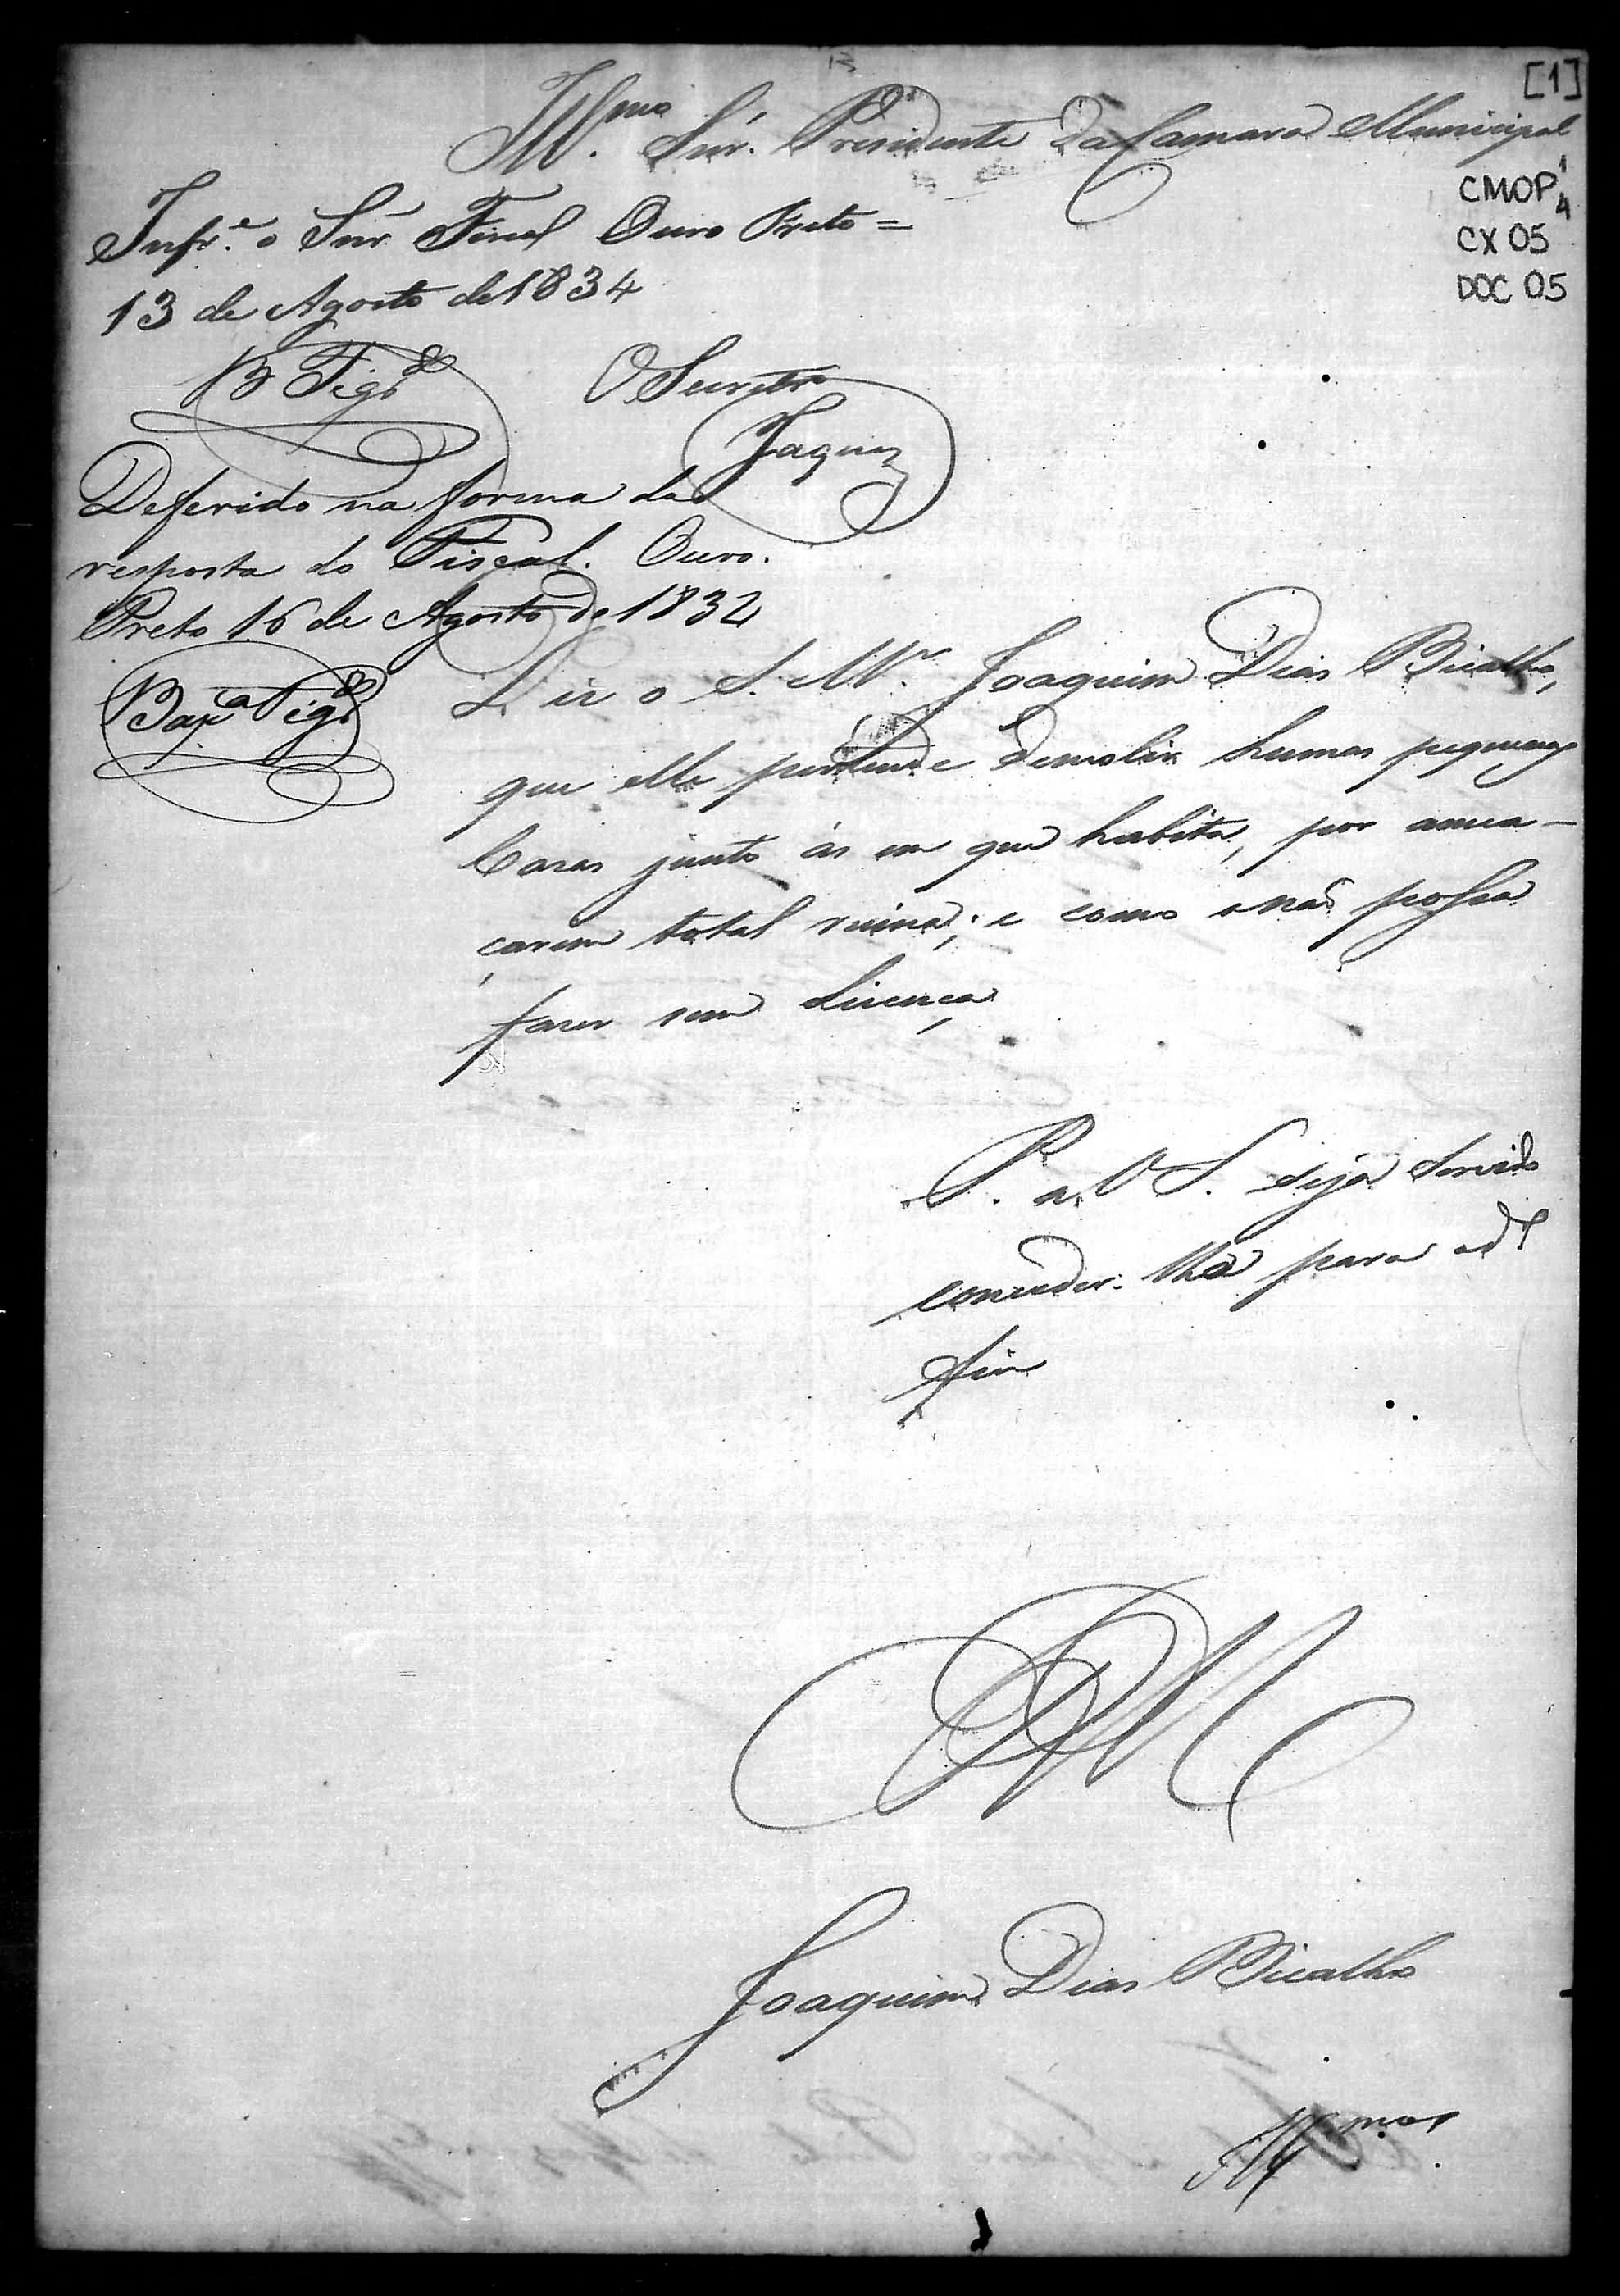 [1]
Illmo Snr. Presidente da Camara Municipal
CMOP 1/4
CX 05
DOC 05
Infr.e o Snr Fiscal Ouro Preto =
13 de Agosto de 1834
B Figdo
O Secretro
Jaques
Deferido na forma da
resposta do Fiscal. Ouro.
Preto 16 de Agosto de 1834
Baxa Figdo
Diz o S. M.r Joaquim Dias Bicalho,
que elle pertende demolir humas pequenas
Cazas junto ás em que habita, por amea-
çarem total ruina; e como o não possa
fazer sem Licença
P. a V S. seja Servido
conceder-lha para od.o
fim
ERM
Joaquim Dias Bicalho
Illmos